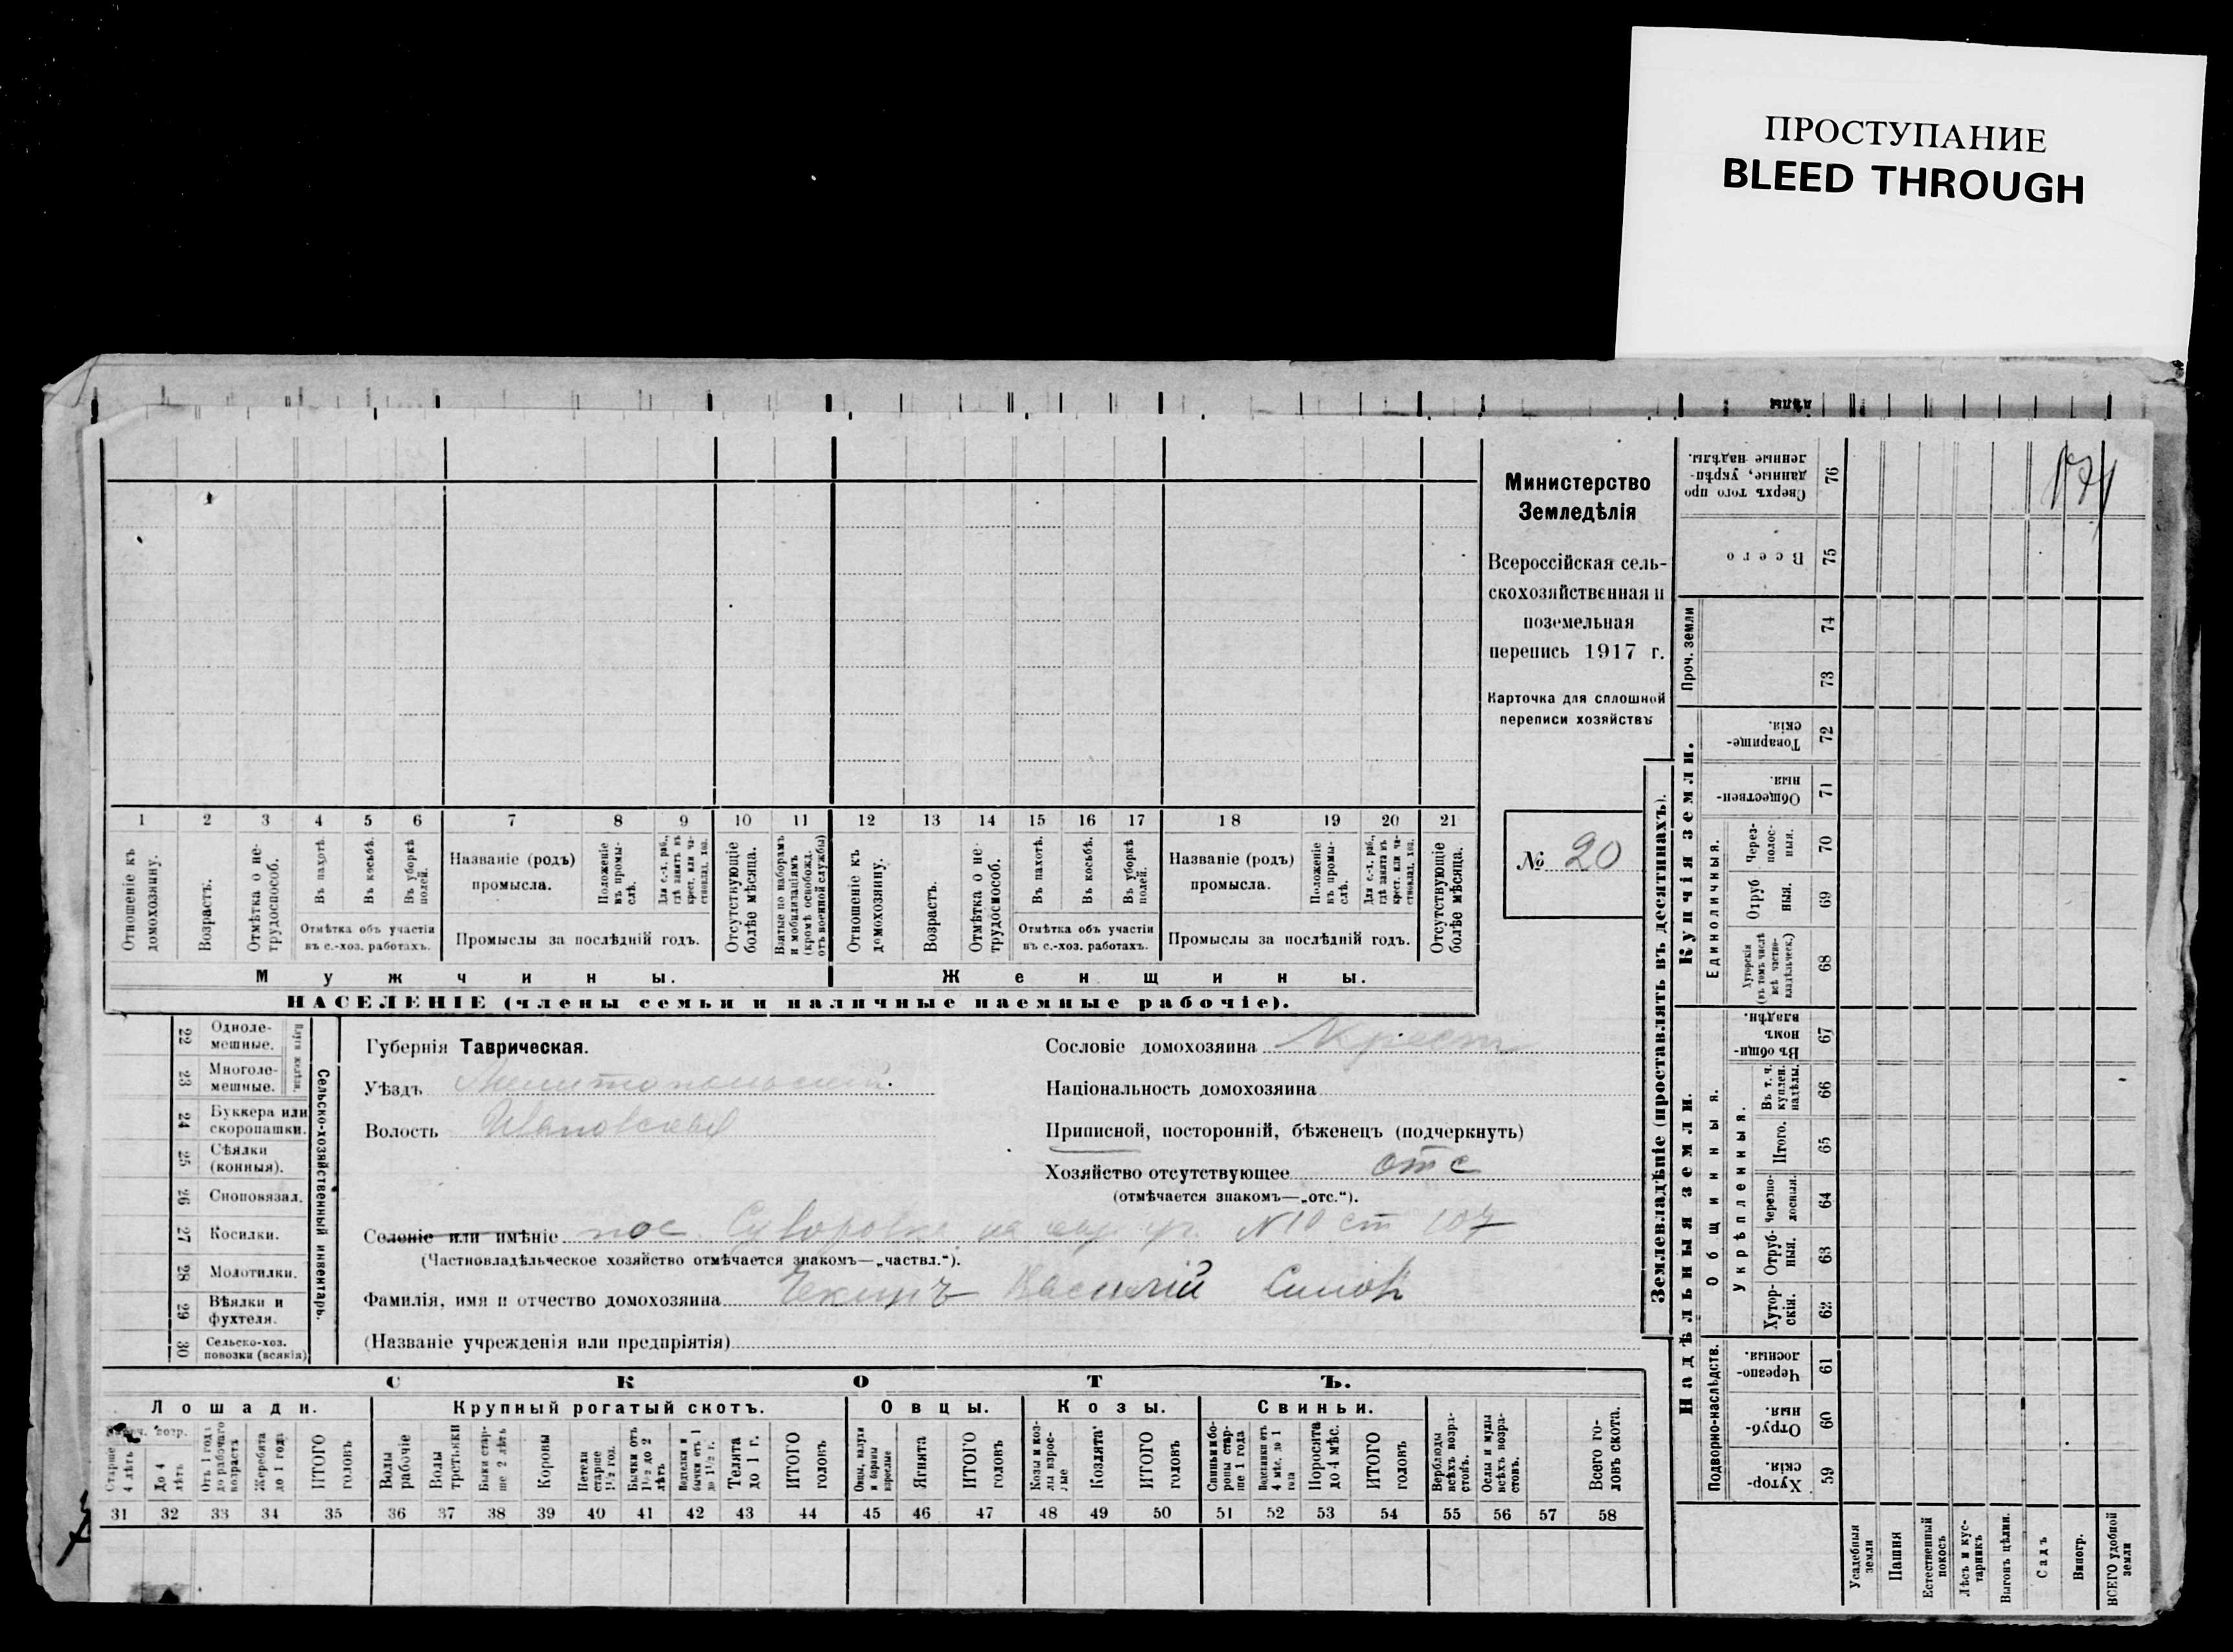 ПРОСТУПАНИЕ
BLEED THROUGH
Министерство
Земледѣлія
Всероссійская сель-
скохозяйственная и
поземельная
перепись 1917 г.
Карточка для сплошной
переписи хозяйствъ
№ 20
1 2 3 4 5 6 7 8 9 10 11 12 13 14 15 16 17 18 19 20 21
Отношеніе къ домохозяину.
Возрастъ.
Отмѣтка о не-
трудоспособ.
Въ пахотѣ.
Въ косьбѣ.
Въ уборкѣ полей.
Отмѣтка объ участіи
въ с.-хоз. работахъ.
Названіе (родъ)
промысла.
Положеніе въ промы-
слѣ.
Для с.-х. раб.,
гдѣ занятъ въ
крест. или ча-
стновлад. хоз.
Промыслы за послѣдній годъ.
Отсутствующіе
болѣе мѣсяца.
Взятые по наборамъ
и мобилизаціямъ
(кромѣ освобожд.
отъ военной службы)
Отношеніе къ
домохозяину.
Возрастъ.
Отмѣтка о не-
трудоспособ.
Въ пахотѣ.
Въ косьбѣ.
Въ уборкѣ
полей.
Отмѣтка объ участіи
въ с.-хоз. работахъ.
Названіе (родъ)
промысла.
Положеніе
въ промы-
слѣ.
Для с.-х. раб.,
гдѣ занята въ
крест. или ча-
стновлад. хоз.
Промыслы за послѣдній годъ.
Отсутствующіе
болѣе мѣсяца.
Мужчины.
Женщины.
НАСЕЛЕНІЕ (члены семьи и наличные наемные рабочіе).
Сельско-хозяйственный инвентарь.
22 Одноле-
мешные.
23 Многоле-
мешные.
24 Буккера или
скоропашки.
25 Сѣялки
(конныя).
26 Сноповязал.
27 Косилки.
28 Молотилки.
29 Вѣялки и
фухтеля.
30 Сельско-хоз.
повозки (всякія)
Губернія Таврическая.
Уѣздъ Мелитопольский.
Волость Ивановская
Сословіе домохозяина Крест
Національность домохозяина
Приписной, посторонній, бѣженецъ (подчеркнуть)
Хозяйство отсутствующее отс
(отмѣчается знакомъ—„отс.“).
Селеніе или имѣніе пос. Суворовка N 10 ст 107
(Частновладѣльческое хозяйство отмѣчается знакомъ—„частвл.“).
Фамилія, имя и отчество домохозяина Василій
(Названіе учрежденія или предпріятія)
СКОТЪ.
Лошади.
Крупный рогатый скотъ.
Овцы.
Козы.
Свиньи.
Старше
4 лѣтъ
До 4
лѣтъ
Отъ 1 года
до рабочаго
возраста
Жеребята
до 1 года
ИТОГО
головъ
Волы
рабочіе
Волы
третьяки
Быки стар-
ше 2 лѣтъ
Коровы
Нетели
старше
1½ год.
Бычки отъ
1½ до 2
лѣтъ
бычки отъ 1
до 1½ г.
Телята
до 1 г.
ИТОГО
головъ
Овцы, валухи
и бараны
взрослые
Ягнята
ИТОГО
головъ
Козы и коз-
лы взрос-
лые
Козлята
ИТОГО
головъ
Свиньи и бо-
ровы стар-
ше 1 года
Подсвинки отъ
4 мѣс. до 1
года
Поросята
до 4 мѣс.
ИТОГО
головъ
Верблюды
всѣхъ возра-
стовъ.
Ослы и мулы
всѣхъ возра-
стовъ.
Всего го-
ловъ скота.
31 32 33 34 35 36 37 38 39 40 41 42 43 44 45 46 47 48 49 50 51 52 53 54 55 56 57 58
Землевладѣніе (проставлять въ десятинахъ).
Купчія земли.
Надѣльныя земли.
Сверхъ того про
данные, укрѣп-
ленные надѣлы.
76
Всего
75
Проч. земли
74
73
Товарище-
скія.
72
Обществен-
ныя.
71
Единоличныя.
Через-
полос-
ныя.
70
Отруб
ныя.
69
Хуторскія
(въ томъ числѣ
всѣ частно-
владѣльческ.)
68
Общинныя.
Въ общи-
номъ
владѣн.
67
Укрѣпленныя.
Въ т. ч.
куплен.
надѣлы.
66
Итого.
65
Черезпо-
лосныя.
64
Отруб-
ныя.
63
Хутор-
скія.
62
Подворно-наслѣдств.
Черезпо-
лосныя.
61
Отруб-
ныя.
60
Хутор-
скія.
59
Усадебныя
земли
Пашня
Естественный
покосъ
Лѣсъ и кус-
тарникъ
Выгонъ цѣлин.
Садъ
Виногр.
ВСЕГО удобной
земли